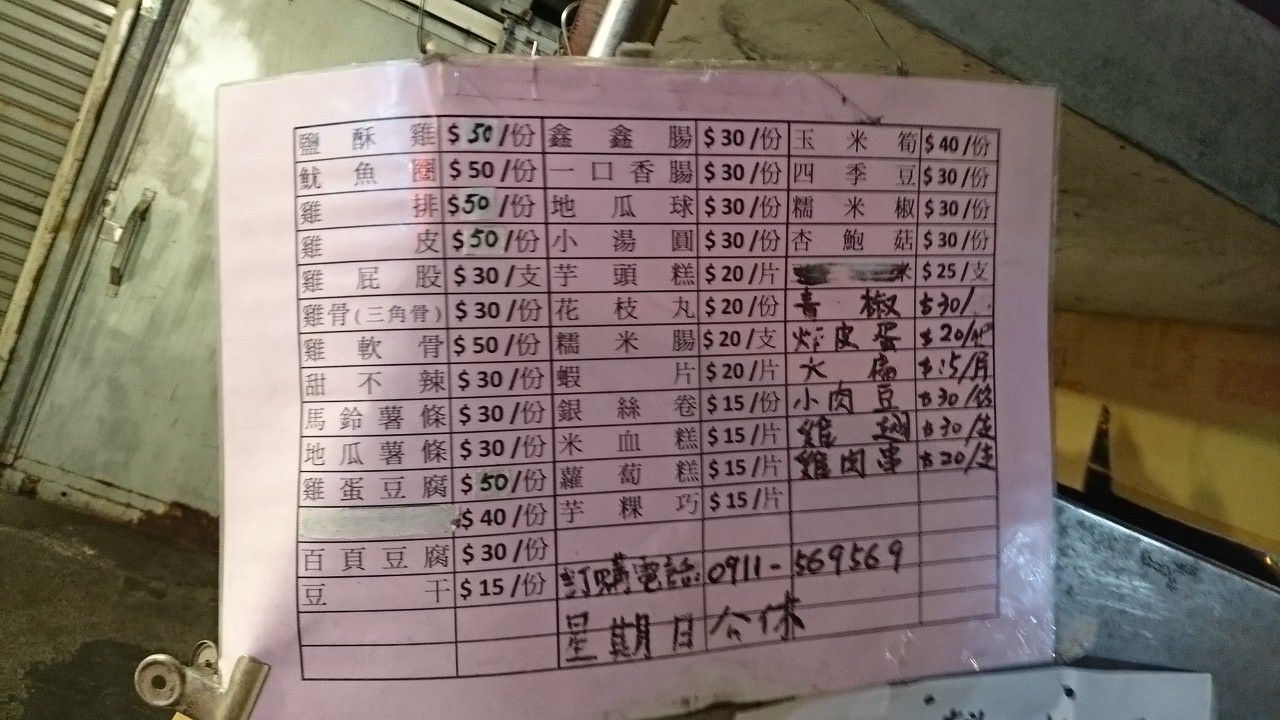 鹽酥雞 $50/份 鑫鑫腸 $30/份 玉米筍 $40/份
魷魚圈 $50/份 一口香腸 $30/份 四季豆 $30/份
雞排 $50/份 地瓜球 $30/份 糯米椒 $30/份
雞皮 $50/份 小湯圓 $30/份 杏鮑菇 $30/份
雞屁股 $30/支 芋頭糕 $20/片 $25/支
雞骨(三角骨) $30/份 花枝丸 $20/份 青椒 $30/
雞軟骨 $50/份 糯米腸 $20/支 炸皮蛋 $20/
甜不辣 $30/份 蝦片 $20/片 大扁 $15/片
馬鈴薯條 $30/份 銀絲卷 $15/份 小肉豆 $30/
地瓜薯條 $30/份 米血糕 $15/片 雞翅 $30/支
雞蛋豆腐 $50/份 蘿蔔糕 $15/片 雞肉串 $20/支
$40/份 芋粿巧 $15/片
百頁豆腐 $30/份
豆干 $15/份 訂購電話:0911-569569
星期日公休